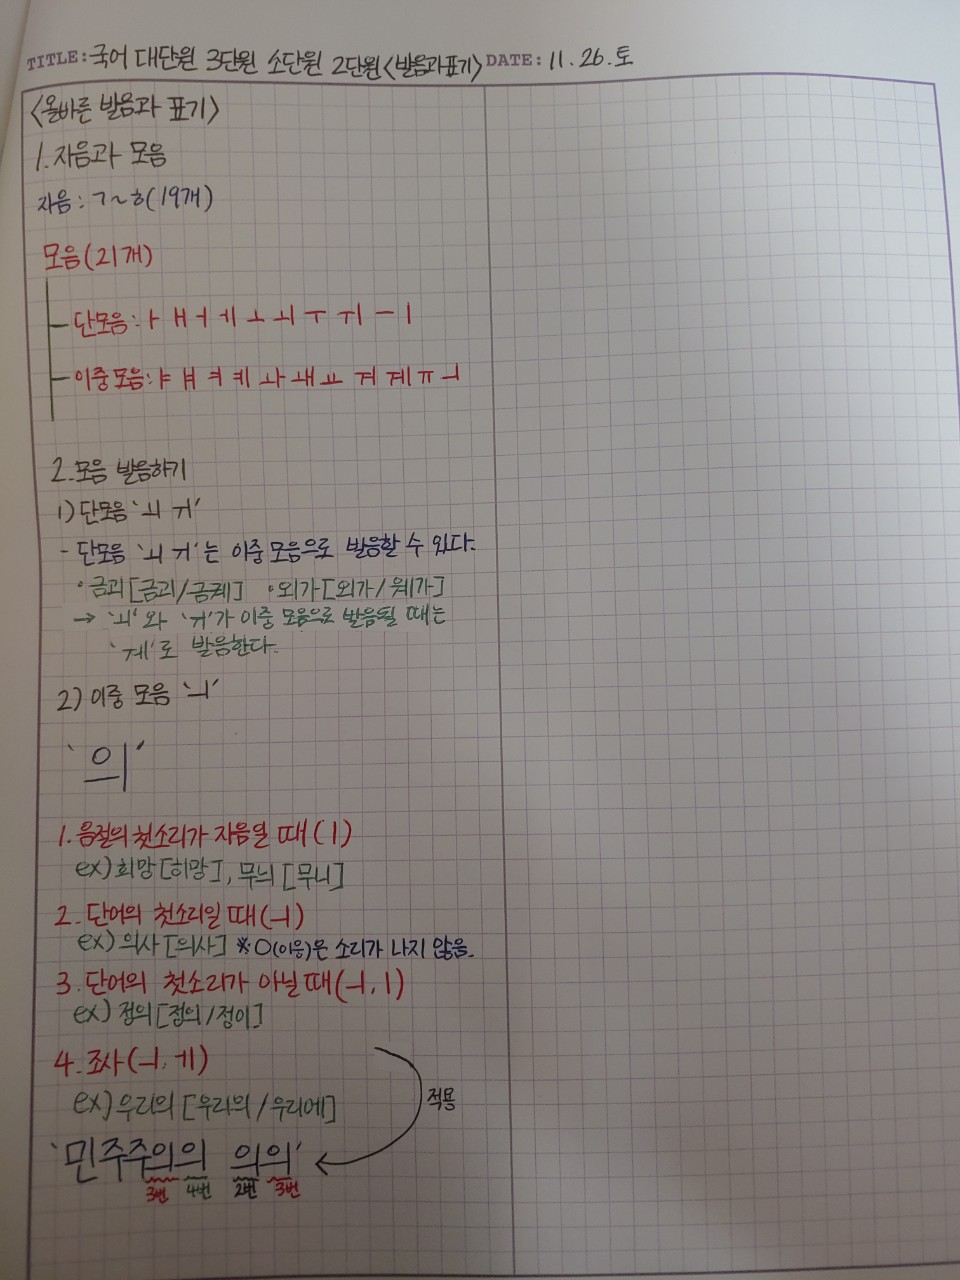 TITLE: 국어 대단원 3단원 소단원 2단원 <발음과 표기> DATE: 11.26.토
<올바른 발음과 표기>
1. 자음과 모음
자음 : ㄱ~ㅎ(19개)
모음(21개)
단모음 : ㅏ ㅐ ㅓ ㅔ ㅗ ㅚ ㅜ ㅟ ㅡ ㅣ
이중모음 : ㅑ ㅒ ㅕ ㅖ ㅘ ㅙ ㅛ ㅝ ㅞ ㅠ ㅢ
2. 모음 발음하기
1) 단모음 'ㅚ ㅟ'
- 단모음 'ㅚ ㅟ'는 이중 모음으로 발음할 수 있다.
• 금괴[금괴/금궤] • 외가[외가/웨가]
→ 'ㅚ'와 'ㅟ'가 이중 모음으로 발음될 때는
'ㅞ'로 발음한다.
2) 이중 모음 'ㅢ'
'의'
1. 음절의 첫소리가 자음일 때(ㅣ)
ex) 희망[히망], 무늬[무니]
2. 단어의 첫소리일 때(ㅢ)
ex) 의사[의사] ※ㅇ(이응)은 소리가 나지 않음.
3. 단어의 첫소리가 아닐 때(ㅢ, ㅣ)
ex) 정의[정의/정이]
4. 조사(ㅢ, ㅔ)
적용
ex) 우리의[우리의/우리에]
'민주주의의 의의'
3번 4번 2번 3번